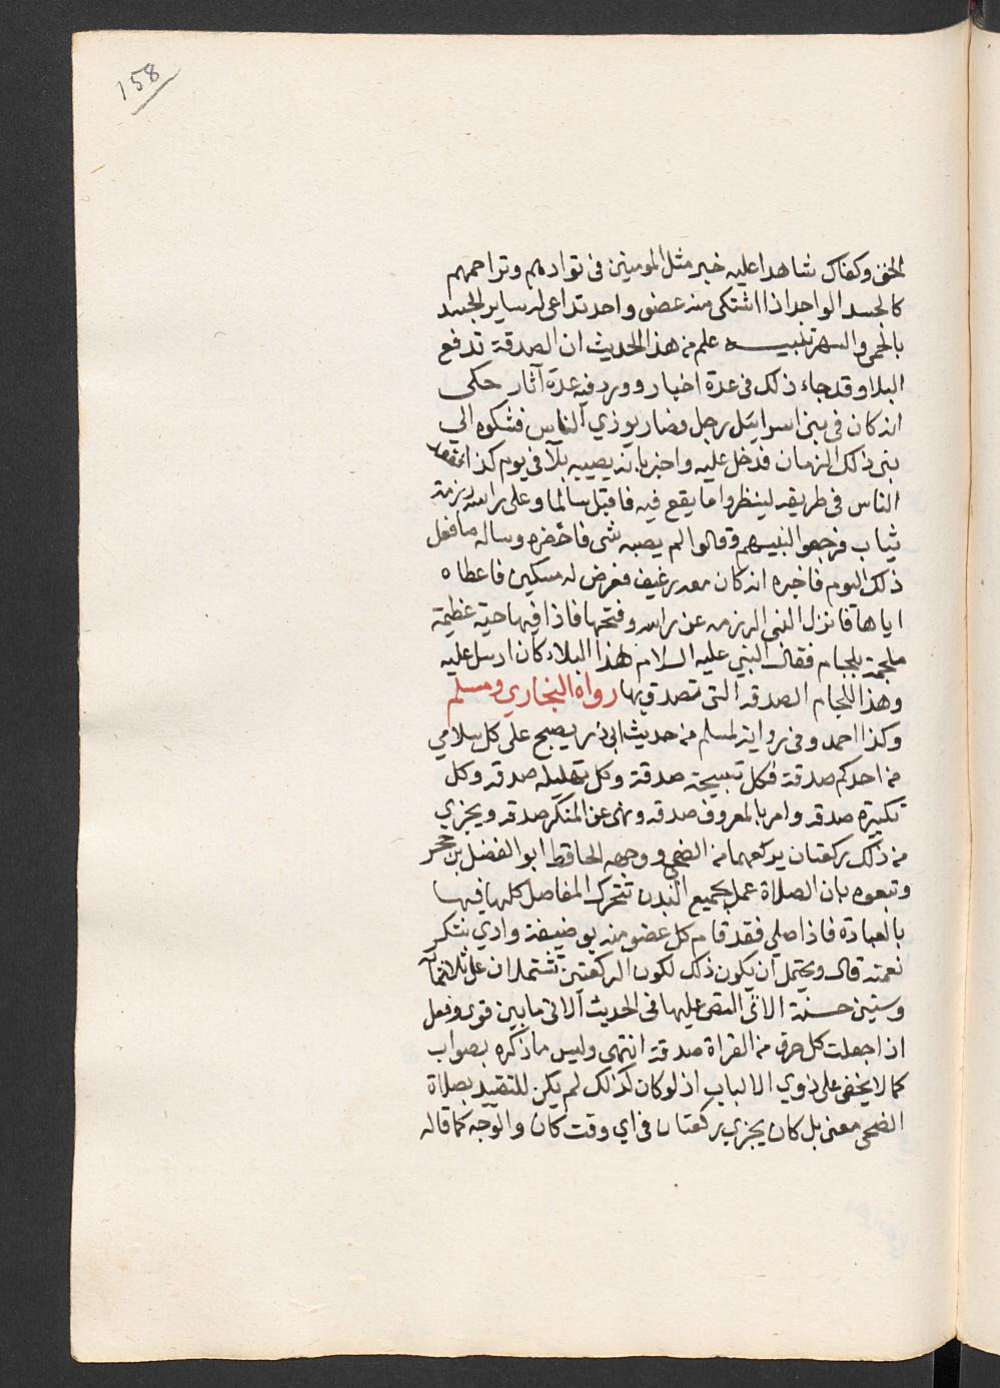 158
الحق وكفاك شاهدا عليه خبر مثل المومنين في توادهم وتراحمهم
كالجسد الواحد اذا اشتكى منه عضو واحد تداعى له ساير الجسد
بالحمى والسهر تنبيـــه علم من هذا الحديث ان الصدقة تدفع
البلا وقد جاء ذلك في عدة اخبار وورد فيه عدة آثار حكى
انه كان في بني اسرائيل رجل قصار يوذي الناس فشكوه الي
نبي ذلك الزمان فدخل عليه واخبر بانه يصيبه بلآ في يوم كذا
الناس في طريقه لينظروا ما يقع فيه فاقبل سالما وعلى راسه رزمة
ثياب فرجعوا لنبيهم وقالوا لم يصبه شي فاحضره وساله ما فعل
ذلك اليوم فاخبره انه كان معه رغيف فعرض له مسكين فاعطاه
اياها فانزل النبي الرزمه عن راسه وفتحها فاذا فيها حية عظيمة
ملجمة بلجام فقال النبي عليه السلام هذا البلاء كان ارسل عليه
وهذا اللجام الصدقه التى تصدق بها رواه البخاري ومسلم
وكذا احمد وفي رواية لمسلم من حديث ابي ذر يصبح على كل سلامي
من احدكم صدقة فكل تسبيحة صدقة وكل تهليله صدقه وكل
تكبيرة صدقه وامر بالمعروف صدقه ونهى عن المنكر صدقه ويجزي
من ذلك ركعتان يركعهما من الضحى ووجهه الحافظ ابو الفضل بن حجر
وتبعوه بان الصلاة عمل بجميع البدن تتحرك المفاصل كلها فيها
بالعبادة فاذا صلي فقد قام كل عضو منه بوضيفة وادي بشكر
نعمته قال ويحتمل ان يكون ذلك لكون الركعتين تشتملان على ثلاثمآ
وستين حسنة الاتى النص عليها في الحديث الاتى ما بين قول وفعل
اذا جعلت كل حرف من القراة صدقة انتهى وليس ما ذكره بصواب
كما لا يخفى على ذوي الالباب اذ لو كان كذلك لم يكن للتقييد بصلاة
الضحى معنى بل كان يجزي ركعتان في اي وقت كان والوجه كما قاله